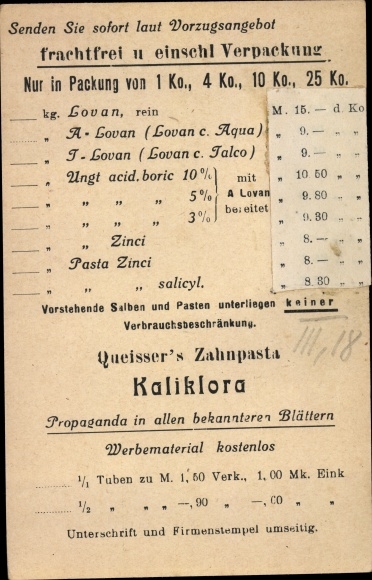 Senden Sie sofort laut Vorzugsangebot
frachtfrei u einschl Verpackung
Nur in Packung von 1 Ko., 4 Ko., 10 Ko., 25 Ko.
kg. Lovan, rein M. 15.— d. Ko
„ A - Lovan (Lovan c. Aqua) „ 9.— „ „
„ T - Lovan (Lovan c. Talco) „ 9.— „ „
„ Ungt acid. boric 10% mit „ 10 50 „ „
„ „ „ „ 5% A Lovan „ 9.80 „ „
„ „ „ „ 3% bereitet „ 9.30 „ „
„ „ Zinci „ 8.— „ „
„ Pasta Zinci „ 8.— „ „
„ „ „ salicyl. „ 8.30 „ „
Vorstehende Salben und Pasten unterliegen keiner
Verbrauchsbeschränkung.
III, 18.
Queisser's Zahnpasta
Kaliklora
Propaganda in allen bekannteren Blättern
Werbematerial kostenlos
1/1 Tuben zu M. 1,50 Verk., 1,00 Mk. Eink
1/2 „ „ „ —,90 „ —,60 „ „
Unterschrift und Firmenstempel umseitig.